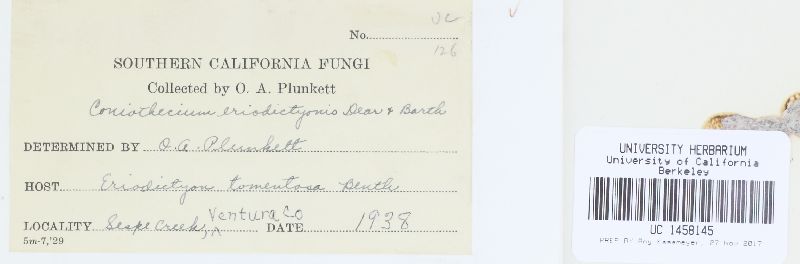 UC
No.
126
SOUTHERN CALIFORNIA FUNGI
Collected by O. A. Plunkett
Coniothecium eriodictyonis Dear & Barth
DETERMINED BY O.A. Plunkett
HOST Eriodictyon tomentosa Benth
LOCALITY Sespe Creek, Ventura Co DATE 1938
5m-7,'29
UNIVERSITY HERBARIUM
University of California
Berkeley
UC 1458145
PREP BY Amy Kasameyer, 27 Nov 2017